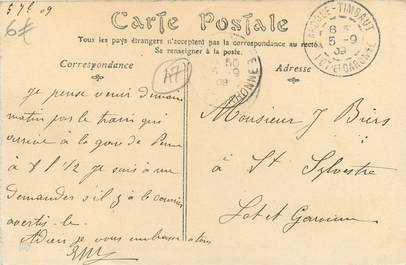 5 7bre 09
6€
Carte Postale
Tous les pays étrangers n'acceptent pas la correspondance au recto
Se renseigner à la poste.
Correspondance
Adresse
LAROQUE-TIMBAUT
8
5-9
09
LOT-ET-GARONNE
50
-9
09
GARONNE
je pense venir demain
matin par le train qui
arrive à la gare de Penne
à 8 h 1/2 je suis à me
demander s'il y a le courrier
avertis-le.
Adieu je vous embrasse
Monsieur J Biers
à St Sylvestre
Lot et Garonne